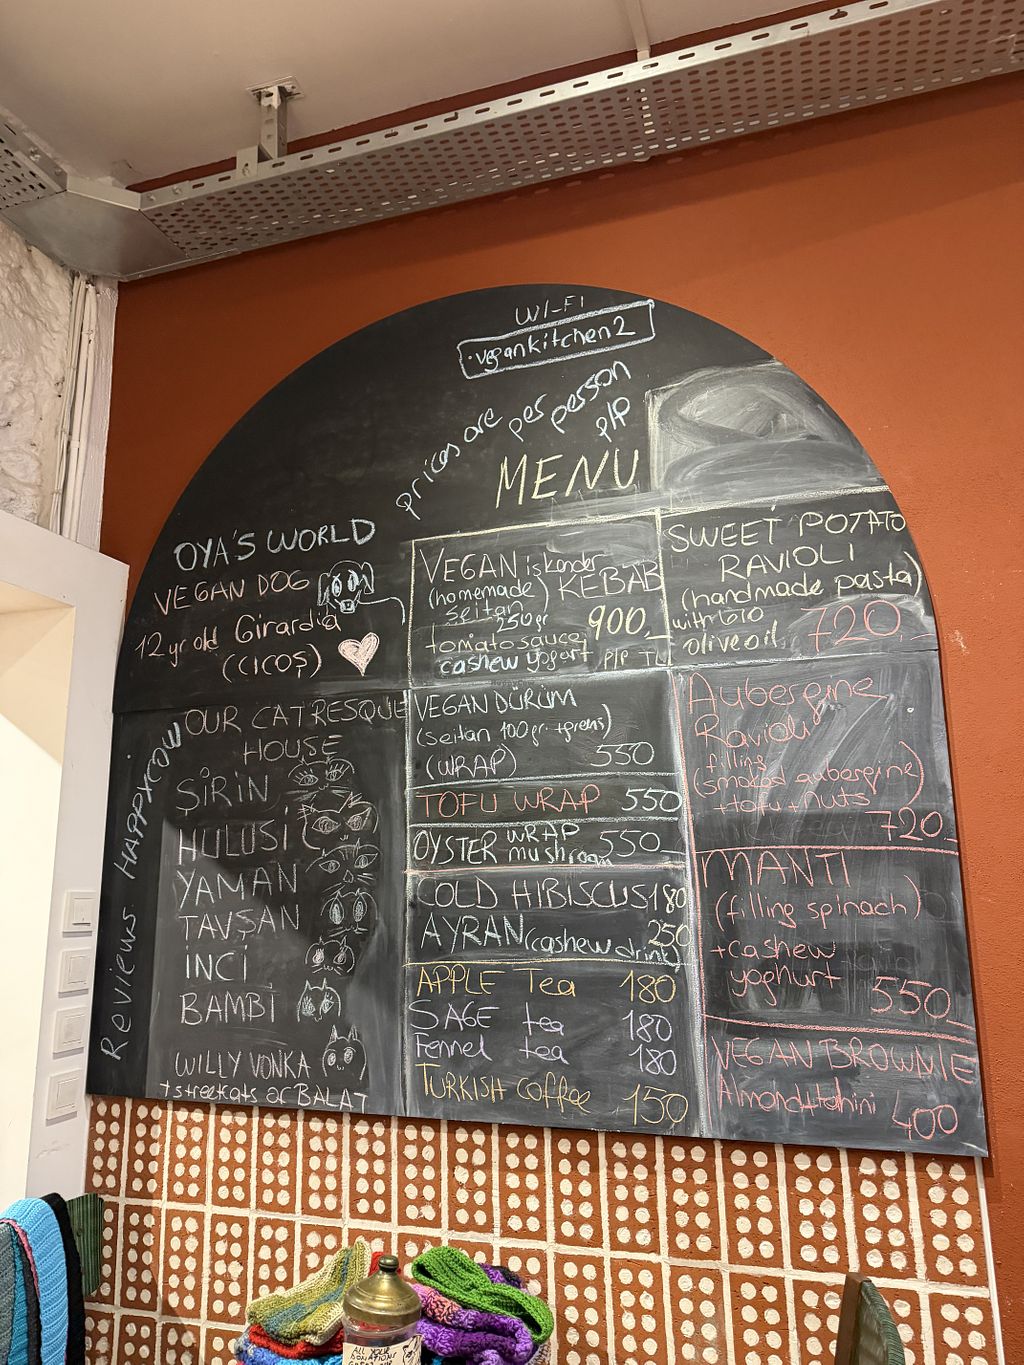 WI-FI
vegankitchen2
prices are per person
P/P
MENU
OYA'S WORLD
VEGAN DOG
12 yr old Girardia
(CICOŞ)
Reviews HAPPYCOW
OUR CAT RESQUE
HOUSE
ŞİRİN
HULUSİ
YAMAN
TAVŞAN
İNCİ
BAMBİ
WILLY VONKA
+streetcats of BALAT
VEGAN iskender
KEBAB
(homemade)
seitan
250gr
tomato sauce
cashew yogurt
900
P/P TL
VEGAN DÜRÜM
(seitan 100gr. +greens)
(WRAP) 550
TOFU WRAP 550
OYSTER WRAP
mushroom 550
COLD HIBISCUS 180
AYRAN (cashew drink) 250
APPLE Tea 180
SAGE tea 180
Fennel tea 180
TURKISH coffee 150
SWEET POTATO
RAVIOLI
(handmade pasta)
with bio
olive oil 720
Aubergine
Ravioli
filling
(smoked aubergine)
+tofu+nuts
720
MANTI
(filling spinach)
+cashew
yoghurt
550
VEGAN BROWNIE
Almond+tahini 400
ALL YOUR
DONATIONS